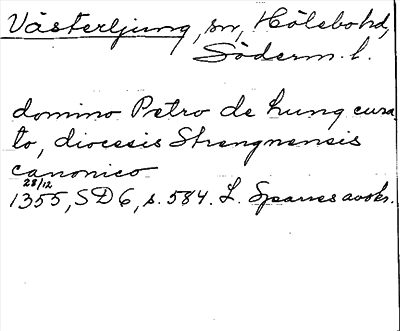 Västerljung, sn, Hölebohd,
Söderm. l.
domino Petro de hung cura
to, diocesis Strengnensis
canonico
28/12
1355, SD 6, s. 584. L. Sparres avskr.